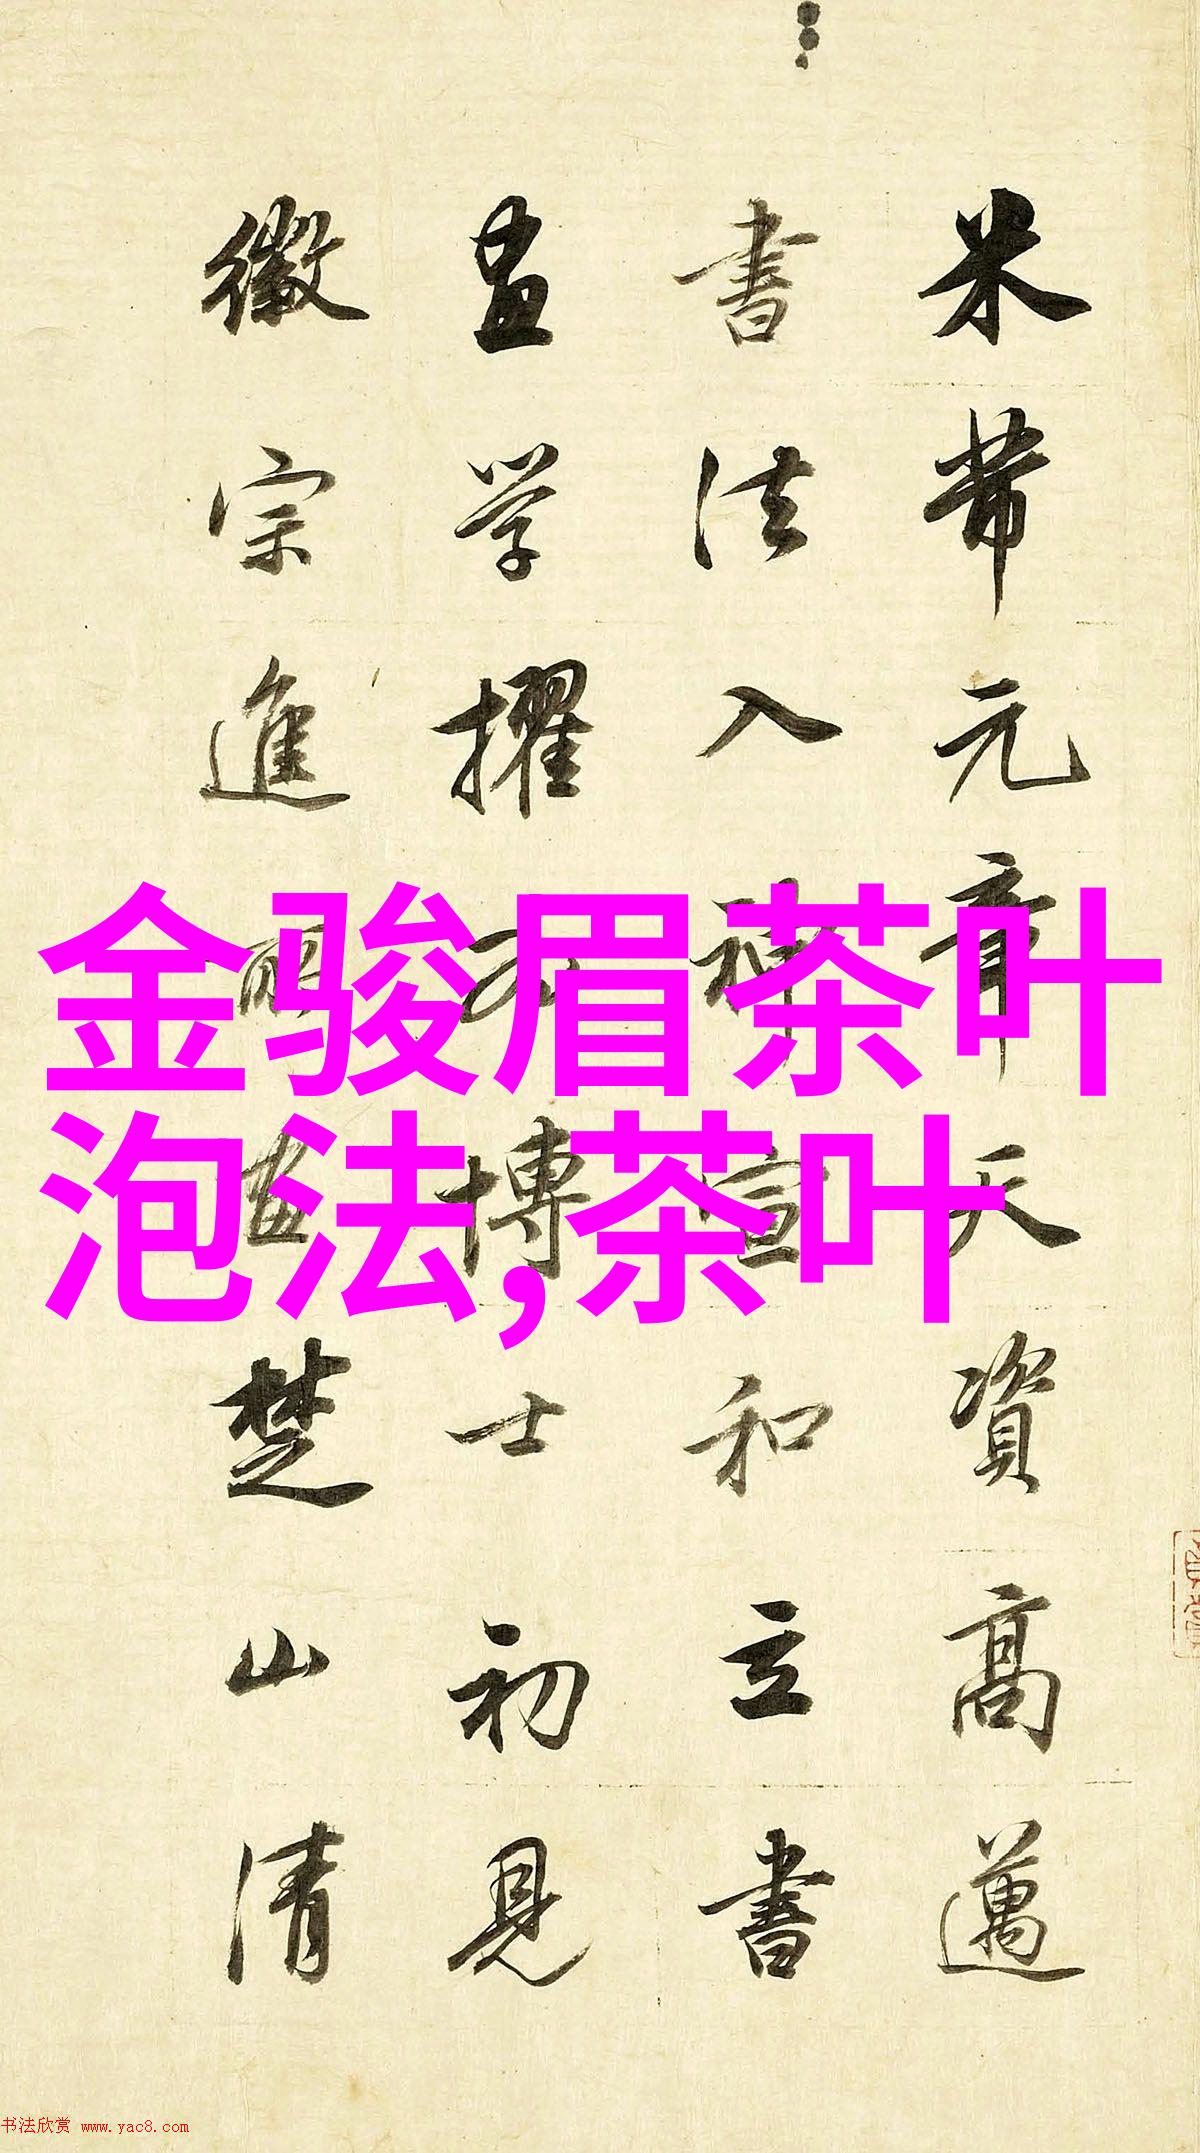 米芾元章天資高邁
書法入神宣和立書
畫学擢為博士初見
徽宗進所画楚山清
金骏眉茶叶
泡法,茶叶
书法欣赏 www.yac8.com